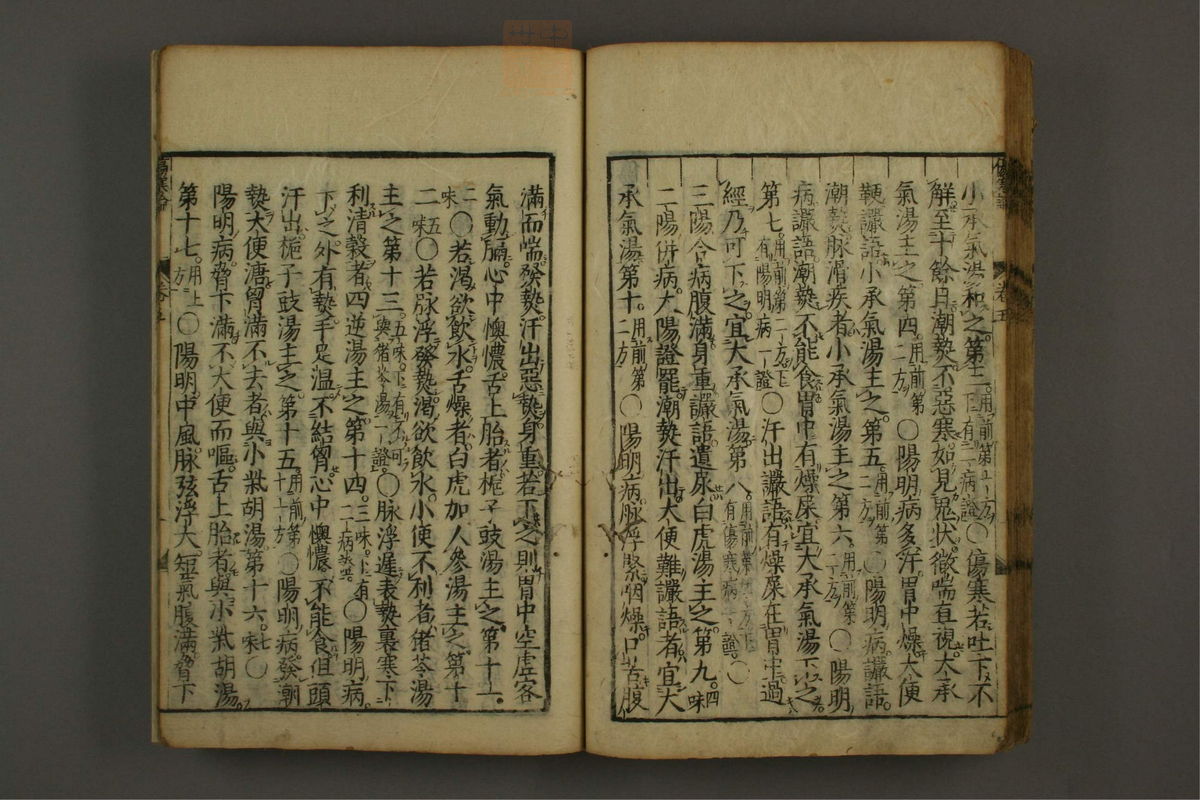 小承氣湯和之第三用前第二方下有二病證〇傷寒若吐下不
解至十餘日潮熱不惡寒如見鬼狀微喘直視大承
氣湯主之第四用前第二方〇陽明病多汗胃中燥大便
鞕讝語小承氣湯主之第五用前第二方〇陽明病讝語
潮熱脉滑疾者小承氣湯主之第六用前第二方〇陽明
病讝語潮熱不能食胃中有燥屎宜大承氣湯下之
第七用前第二方下有陽明病一證〇汗出讝語有燥屎在胃中過
經乃可下之宜大承氣湯第八用前第二方下有傷寒病一證〇
三陽合病腹滿身重讝語遺尿白虎湯主之第九四味
二陽併病太陽證罷潮熱汗出大便難讝語者宜大
承氣湯第十用前第二方〇陽明病脉浮緊咽燥口苦腹
滿而喘發熱汗出惡熱身重若下之則胃中空虛客
氣動膈心中懊憹舌上胎者梔子豉湯主之第十一
二味〇若渴欲飲水舌燥者白虎加人參湯主之第十
二五味〇若脉浮發熱渴欲飲水小便不利者猪苓湯
主之第十三五味下有不可與猪苓湯一證〇脉浮遲表熱裏寒下
利清穀者四逆湯主之第十四三味下有二病證〇陽明病
下之外有熱手足溫不結胷心中懊憹不能食但頭
汗出梔子豉湯主之第十五用前第十一方〇陽明病發潮
熱大便溏胷滿不去者與小柴胡湯第十六七味〇
陽明病脅下滿不大便而嘔舌上胎者與小柴胡湯
第十七用上方〇陽明中風脉弦浮大短氣腹滿脅下
傷寒論
卷五